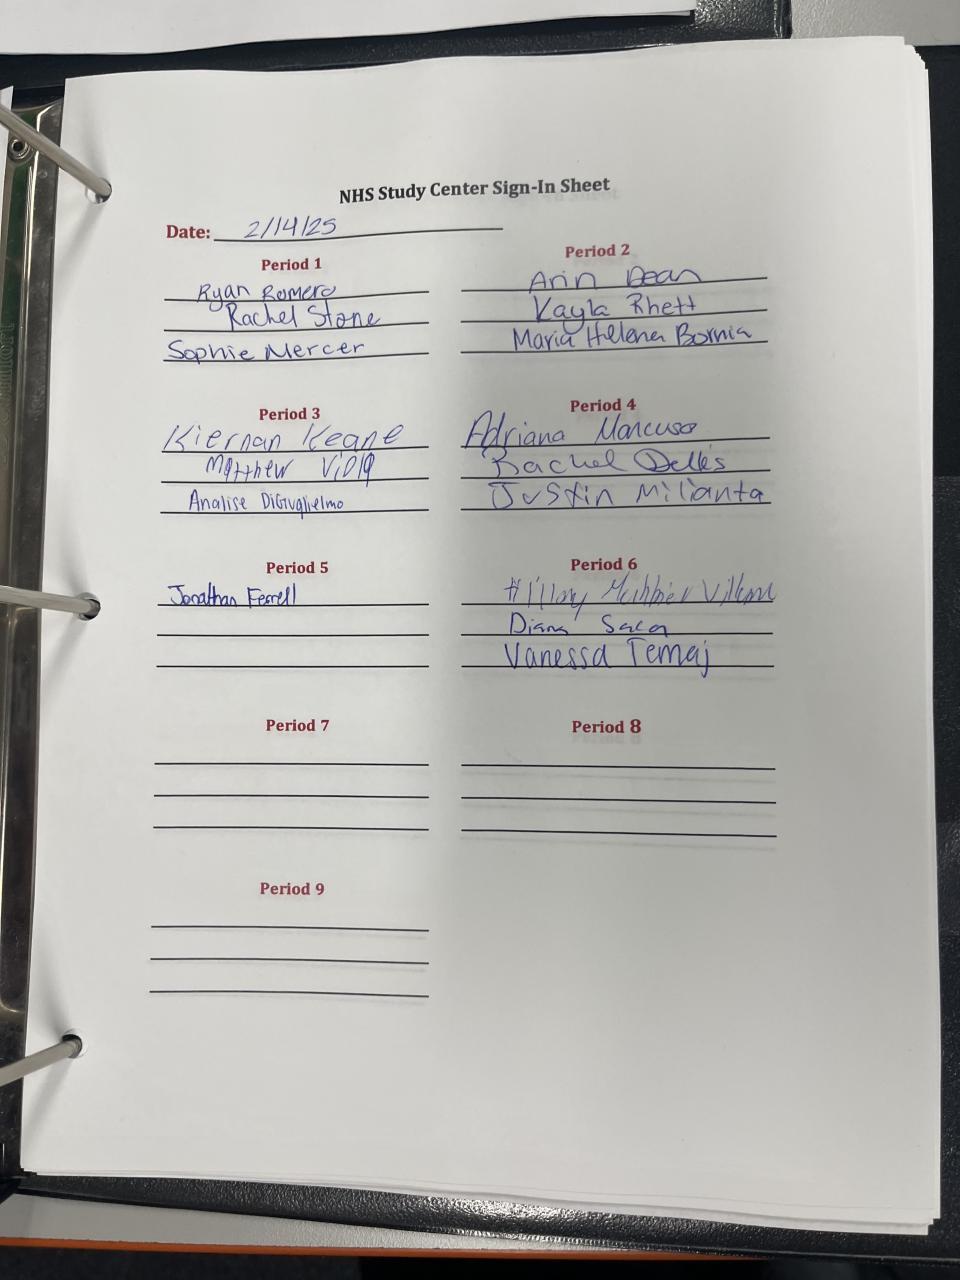 NHS Study Center Sign-In Sheet
Date: 2/14/25
Period 1
Ryan Romero
Rachel Stone
Sophie Mercer
Period 2
Arin Dean
Kayla Rhett
Maria Hellena Bornia
Period 3
Kiernan Keane
Matthew Viola
Analise DiGuglielmo
Period 4
Adriana Mancuso
Rachel Delles
Justin Milianta
Period 5
Jonathan Ferrell
Period 6
Hillary
Diana
Vanessa Temaj
Period 7
Period 8
Period 9